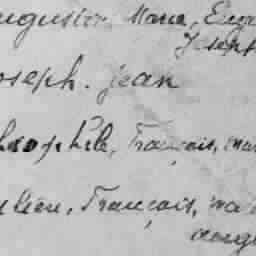 Augustin, Maria, Euge
Joseph
Joseph. jean
Théophile, François, mar
Julien, François, ma
Augu